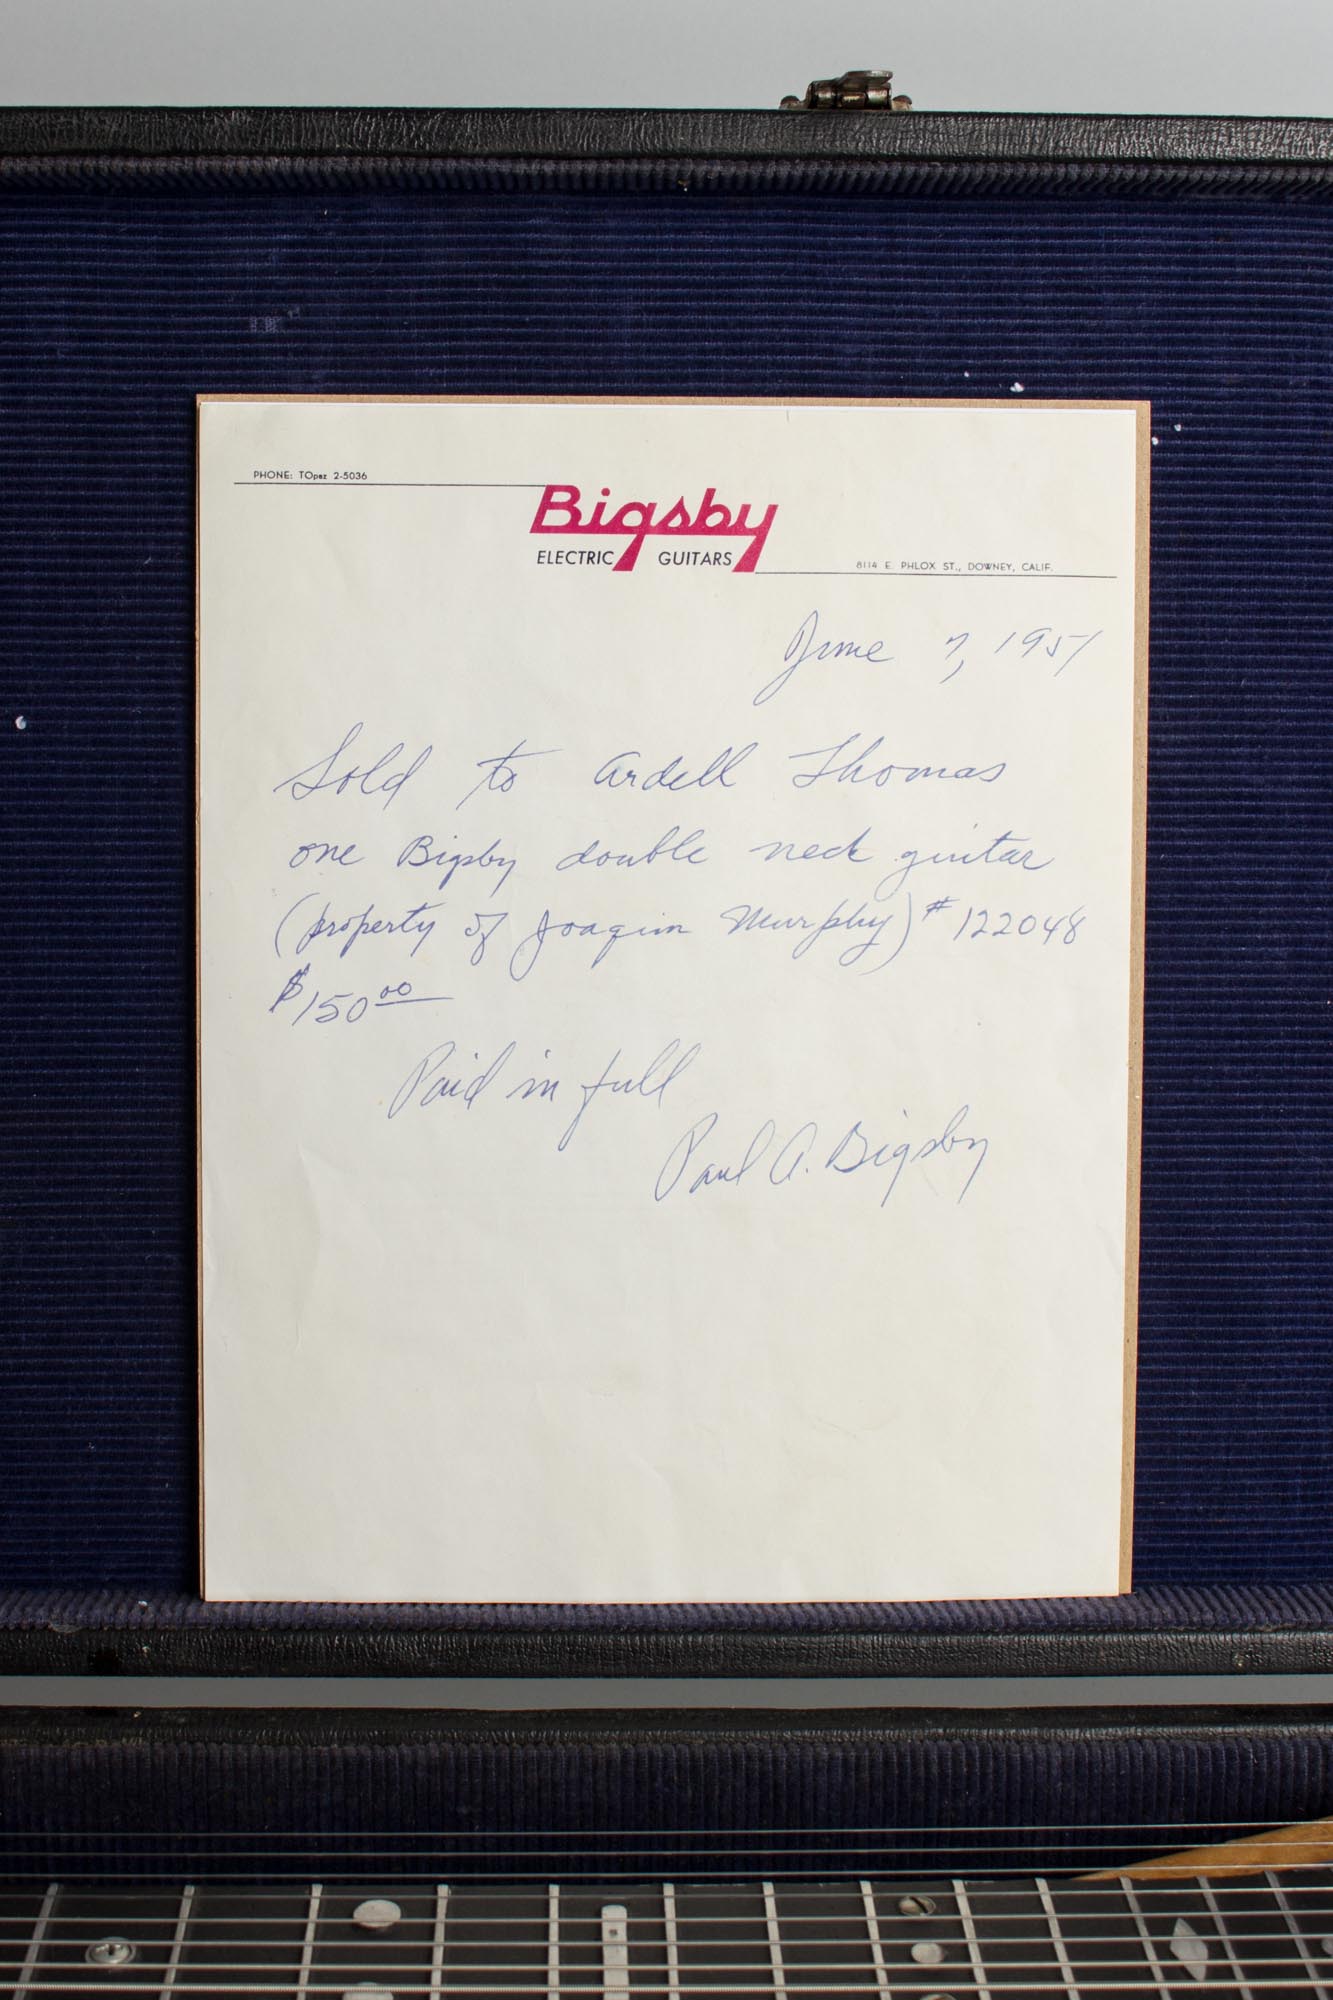 PHONE: TOpaz 2-5036
Bigsby
ELECTRIC GUITARS
8114 E. PHLOX ST., DOWNEY, CALIF.
June 7, 1951
Sold to Ardell Thomas
one Bigsby double neck guitar
(property of Joaquin Murphy) # 122048
$150 00
Paid in full
Paul A. Bigsby